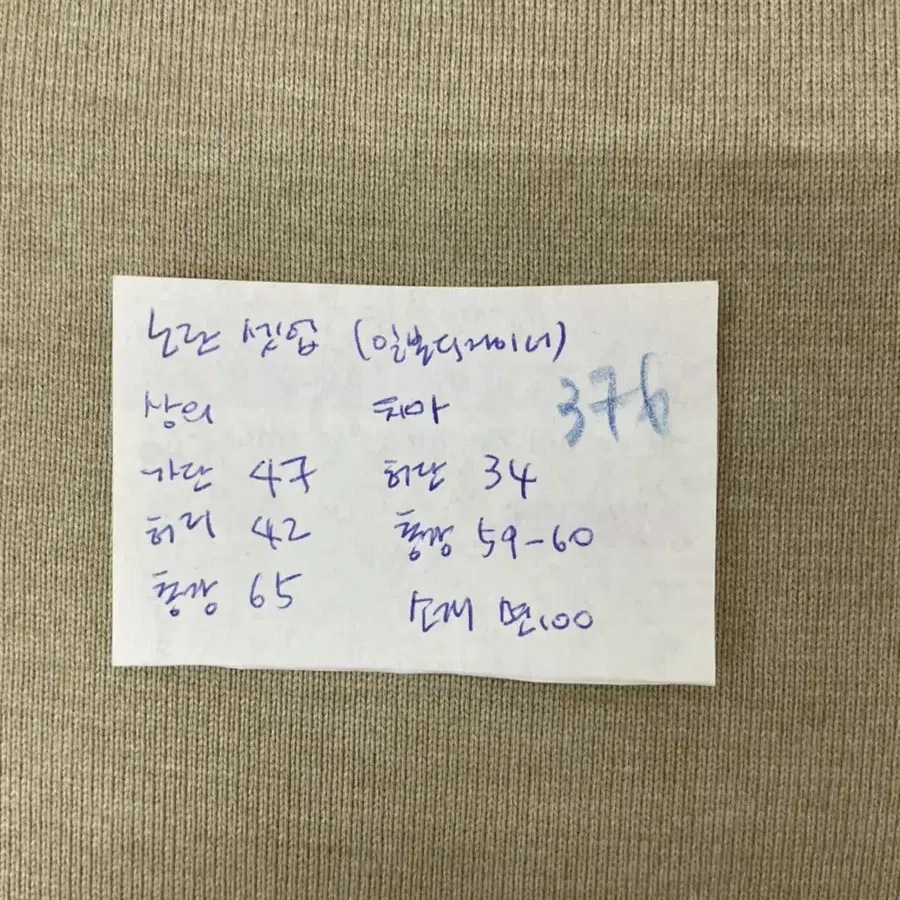 노란 셋업 (일본디자이너)
376
상의 치마
가단 47 허단 34
허리 42 총장 59-60
총장 65
소재 면100